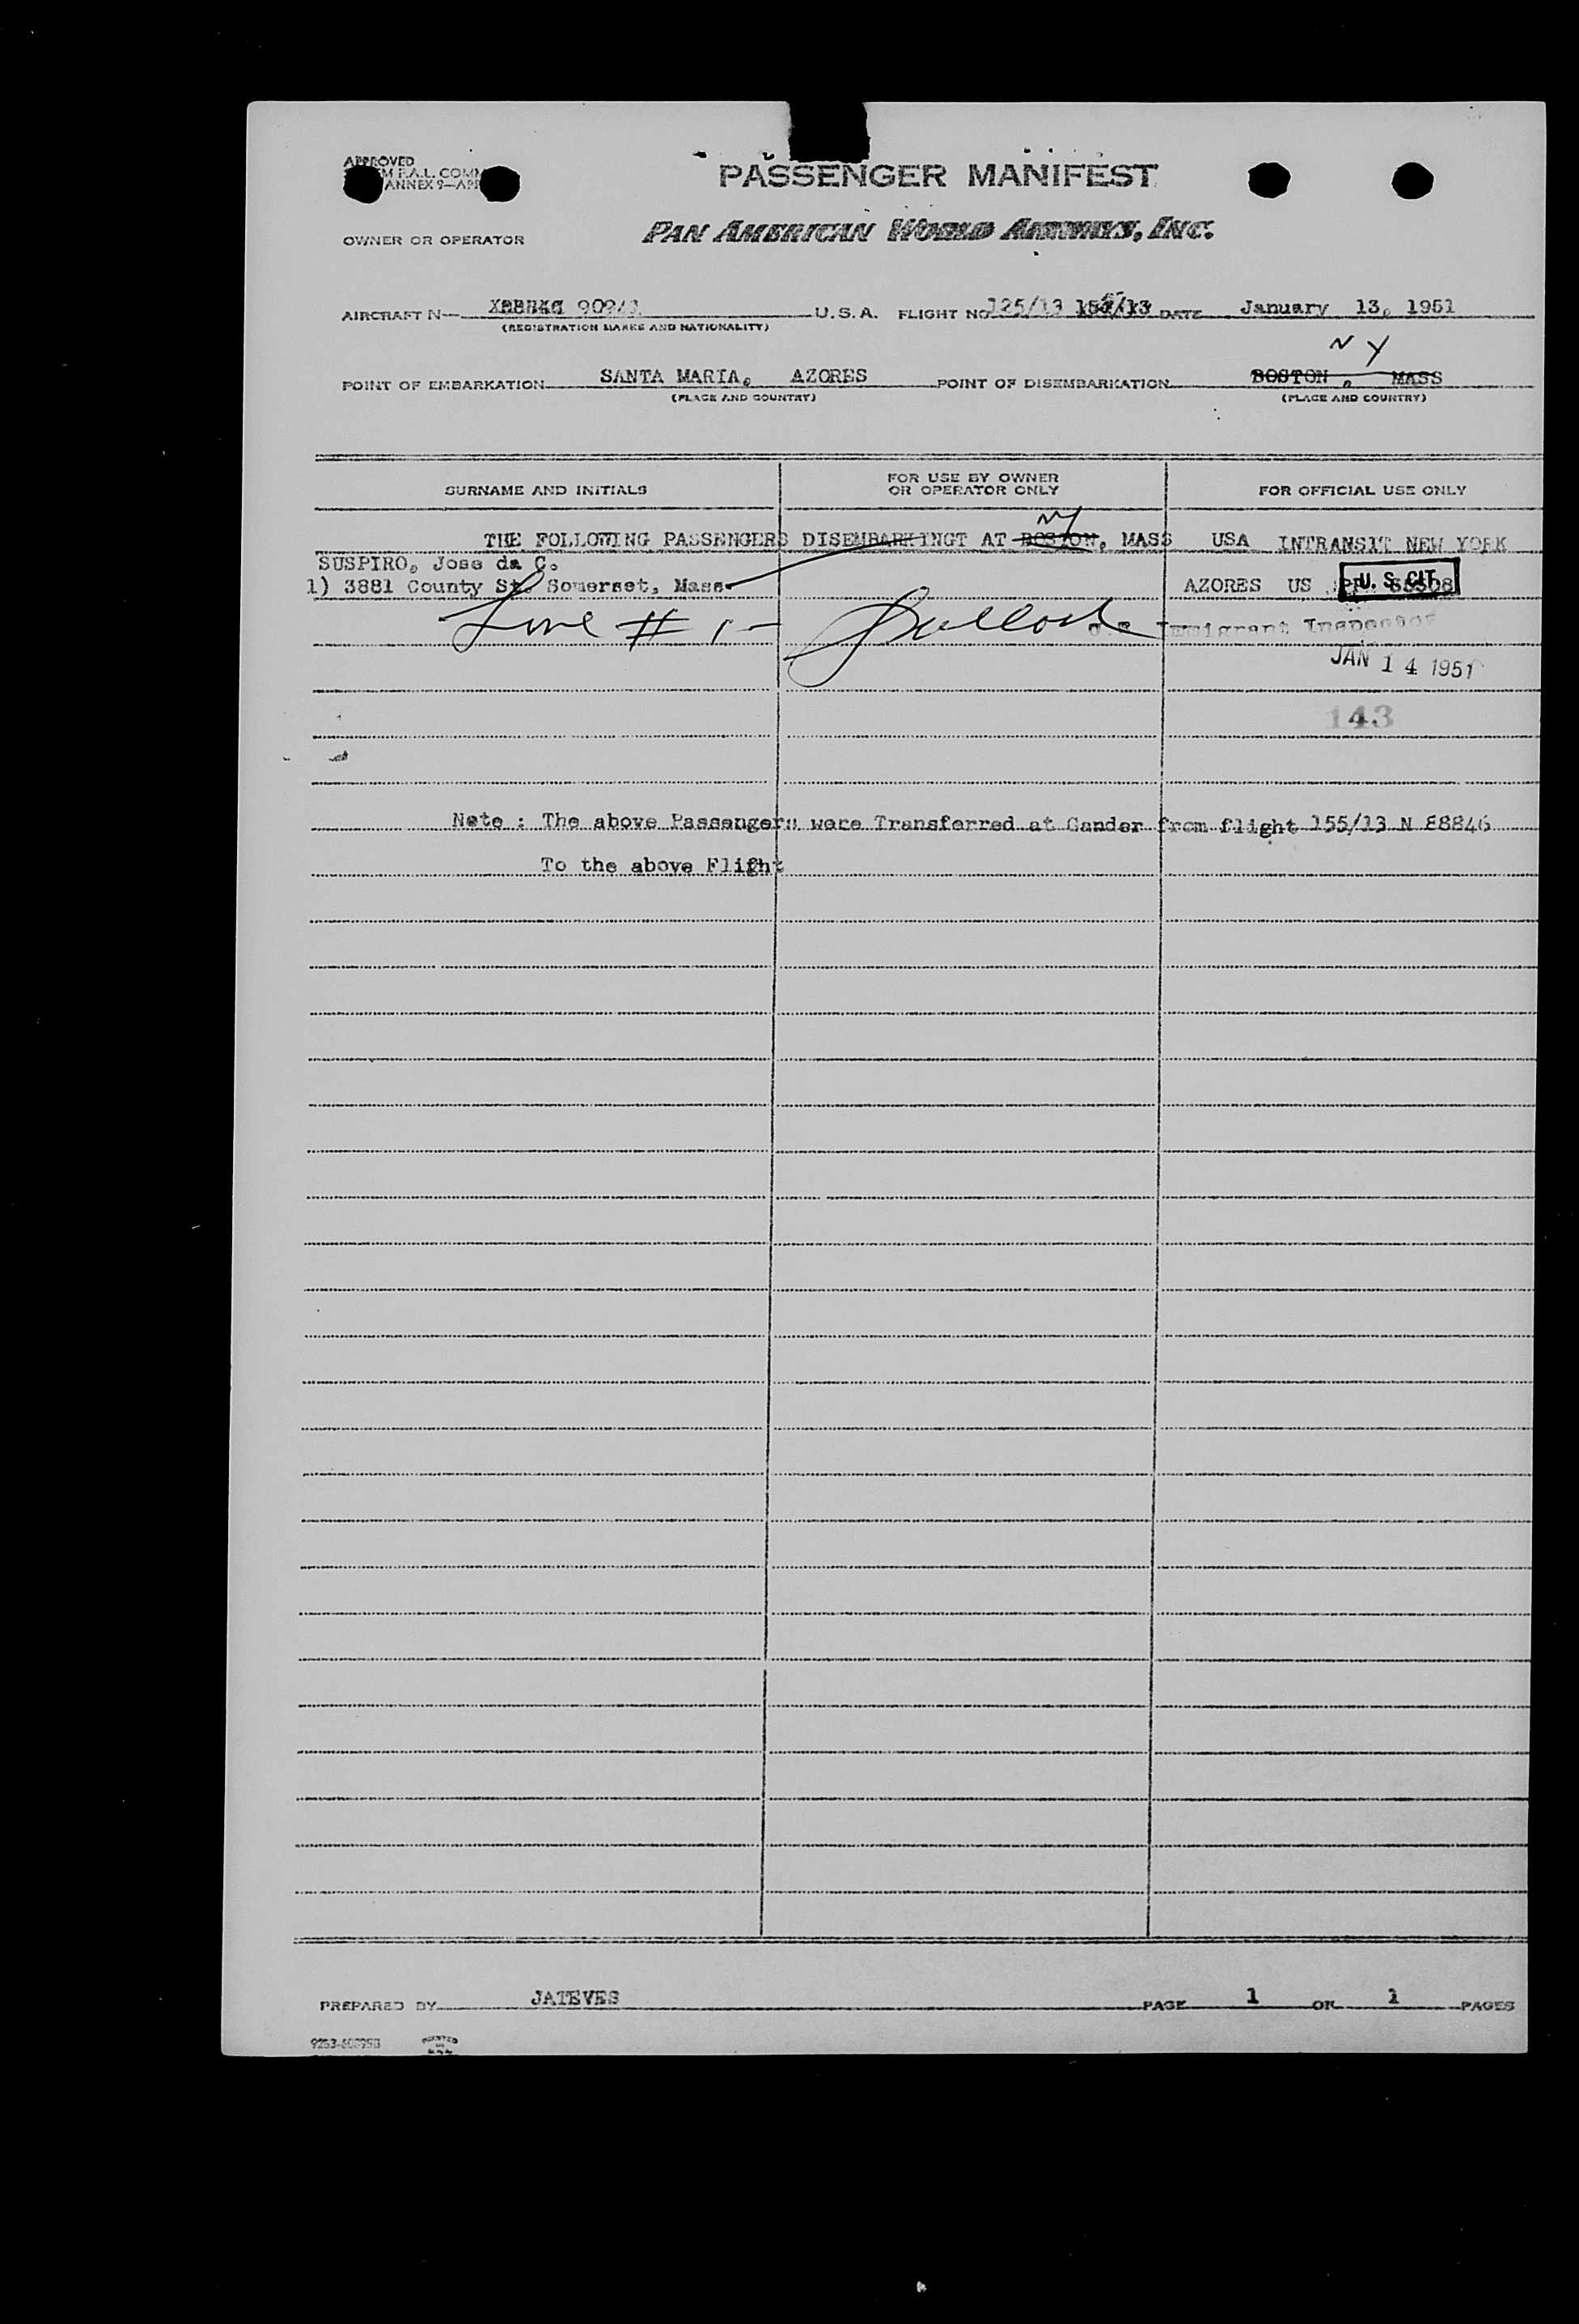 APPROVED
F.A.L. COMM
ANNEX 9—AP
PASSENGER MANIFEST
OWNER OR OPERATOR
PAN AMERICAN WORLD AIRWAYS, INC.
AIRCRAFT N— U.S.A. FLIGHT NO 125/13 DATE January 13, 1951
(REGISTRATION MARKS AND NATIONALITY)
N Y
POINT OF EMBARKATION SANTA MARIA, AZORES POINT OF DISEMBARKATION BOSTON, MASS
(PLACE AND COUNTRY) (PLACE AND COUNTRY)
SURNAME AND INITIALS
FOR USE BY OWNER
OR OPERATOR ONLY
FOR OFFICIAL USE ONLY
NY
THE FOLLOWING PASSENGERS DISEMBARKINGT AT BOSTON, MASS USA INTRANSIT NEW YORK
SUSPIRO, Jose da C.
1) 3881 County St. Somerset, Mass. AZORES US U. S. CIT.
Line # 1 - Bullock Immigrant Inspector
JAN 14 1951
143
Note : The above Passengers were Transferred at Gander from flight 155/13 N 88846
To the above Flight
PREPARED BY JATEVES PAGE 1 OF 1 PAGES
PRINTED